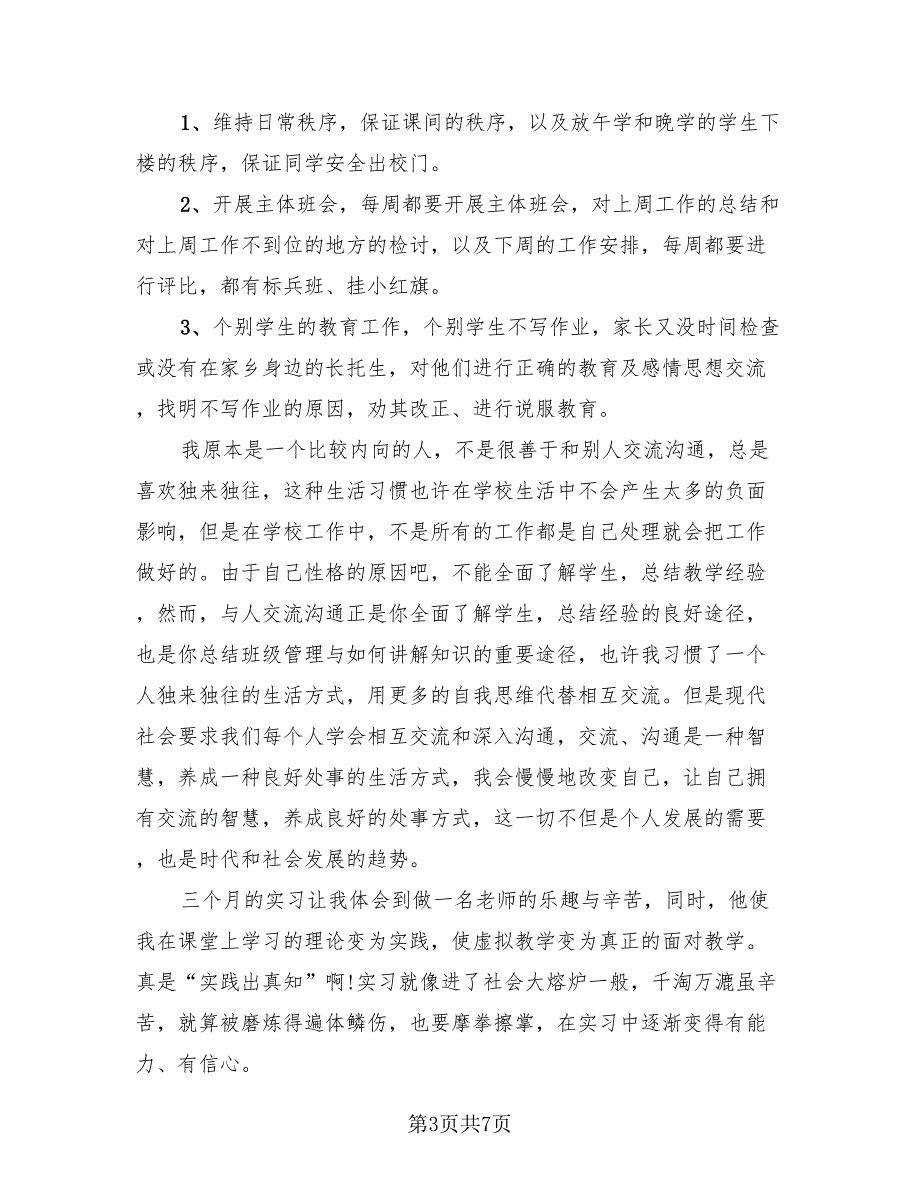 1、维持日常秩序，保证课间的秩序，以及放午学和晚学的学生下
楼的秩序，保证同学安全出校门。
2、开展主体班会，每周都要开展主体班会，对上周工作的总结和
对上周工作不到位的地方的检讨，以及下周的工作安排，每周都要进
行评比，都有标兵班、挂小红旗。
3、个别学生的教育工作，个别学生不写作业，家长又没时间检查
或没有在家乡身边的长托生，对他们进行正确的教育及感情思想交流
，找明不写作业的原因，劝其改正、进行说服教育。
我原本是一个比较内向的人，不是很善于和别人交流沟通，总是
喜欢独来独往，这种生活习惯也许在学校生活中不会产生太多的负面
影响，但是在学校工作中，不是所有的工作都是自己处理就会把工作
做好的。由于自己性格的原因吧，不能全面了解学生，总结教学经验
，然而，与人交流沟通正是你全面了解学生，总结经验的良好途径，
也是你总结班级管理与如何讲解知识的重要途径，也许我习惯了一个
人独来独往的生活方式，用更多的自我思维代替相互交流。但是现代
社会要求我们每个人学会相互交流和深入沟通，交流、沟通是一种智
慧，养成一种良好处事的生活方式，我会慢慢地改变自己，让自己拥
有交流的智慧，养成良好的处事方式，这一切不但是个人发展的需要
，也是时代和社会发展的趋势。
三个月的实习让我体会到做一名老师的乐趣与辛苦，同时，他使
我在课堂上学习的理论变为实践，使虚拟教学变为真正的面对教学。
真是“实践出真知”啊!实习就像进了社会大熔炉一般，千淘万漉虽辛
苦，就算被磨炼得遍体鳞伤，也要摩拳擦掌，在实习中逐渐变得有能
力、有信心。
第3页共7页